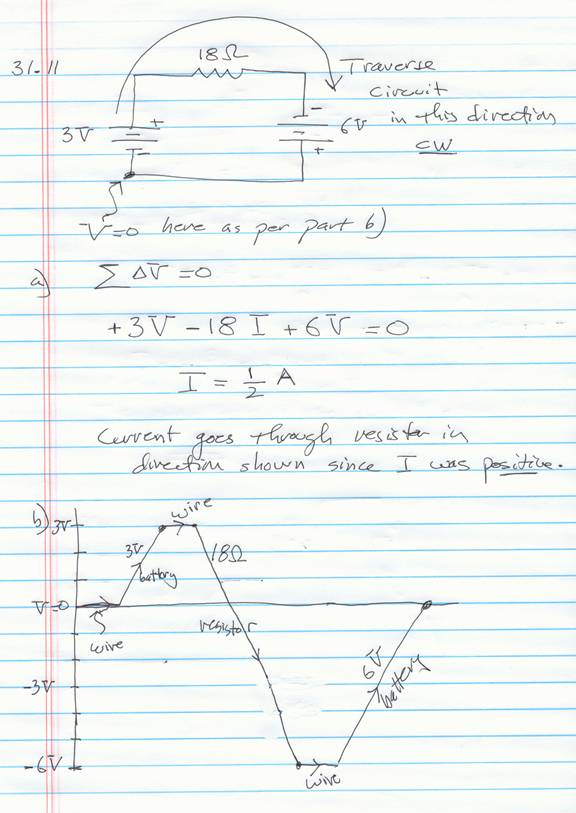 31-11
18Ω
Traverse
circuit
in this direction
CW
3V
+
-
-
6V
+
V=0 here as per part b)
a) ∑ ΔV = 0
+3V - 18 I + 6V = 0
I = 1/2 A
Current goes through resistor in
direction shown since I was positive.
b)
3V
wire
3V
battery
18Ω
V=0
wire
resistor
-3V
6V
battery
-6V
wire